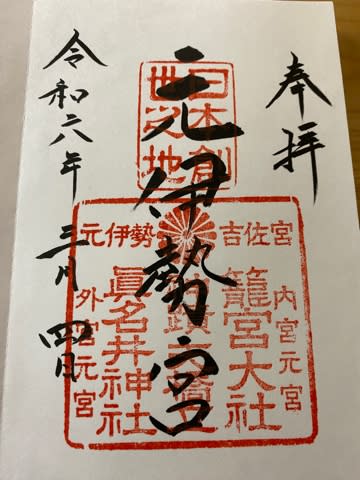 奉拝
日本創
世之地
元伊勢宮
吉佐宮
元伊勢
内宮元宮
籠宮大社
眞名井神社
外宮元宮
令和六年 三月 四日